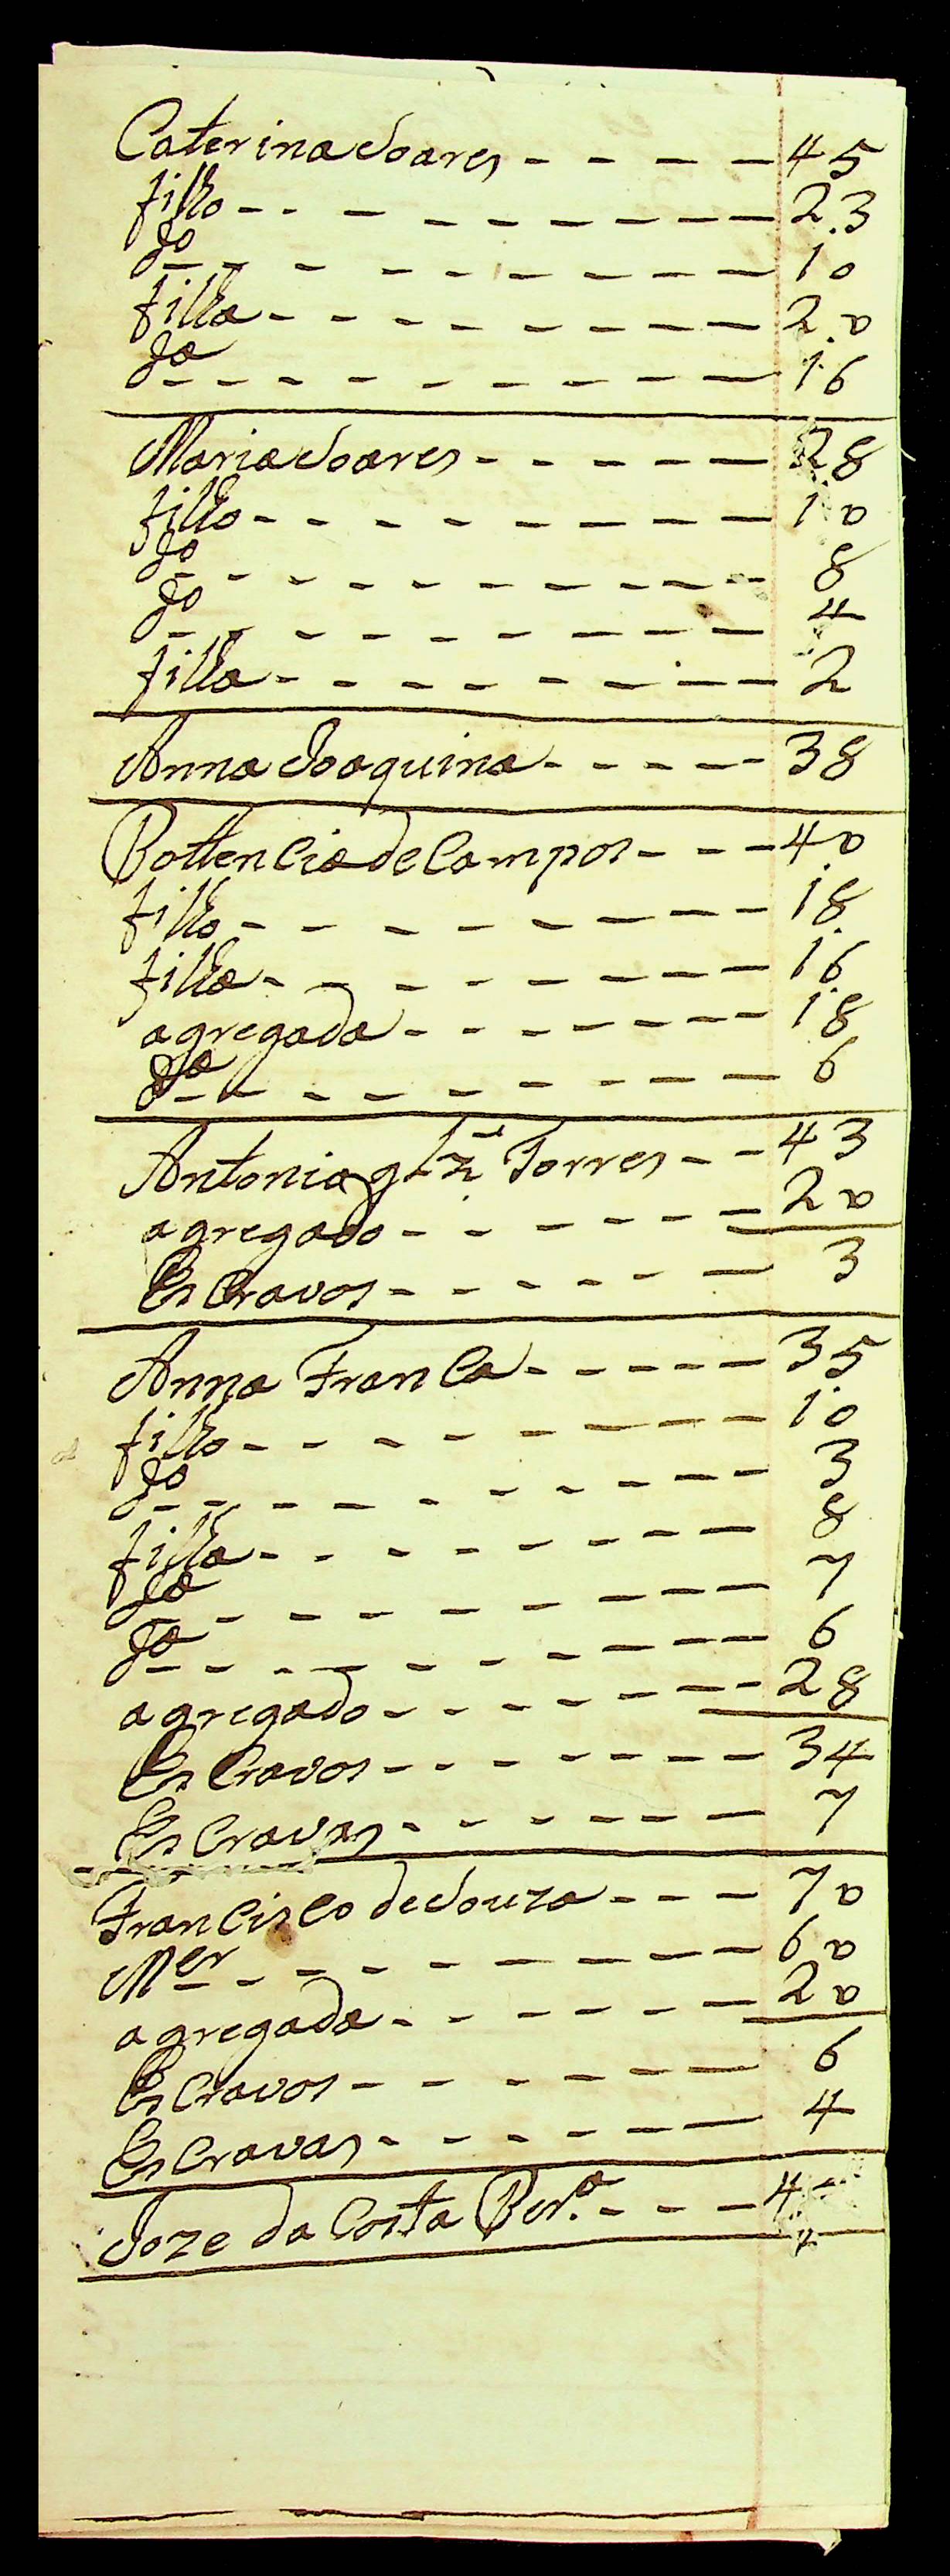 Caterina Soares - - - - 45
filho - - - - - - - - - 23
do - - - - - - - - - 10
filha - - - - - - - - - 20
da - - - - - - - - - 16
Maria Soares - - - - - 28
filho - - - - - - - - - 10
do - - - - - - - - - 8
do - - - - - - - - - 4
filha - - - - - - - - - 2
Anna Joaquina - - - - - 38
Bottencia de Campos - - - 40
filho - - - - - - - - 18
filha - - - - - - - - 16
agregada - - - - - - - 18
da - - - - - - - - - 6
Antonia glz Torres - - 43
agregado - - - - - - 20
Escravos - - - - - - 3
Anna Franca - - - - - 35
filho - - - - - - - - - 10
do - - - - - - - - - 3
filha - - - - - - - - 8
da - - - - - - - - - 7
da - - - - - - - - - 6
agregado - - - - - - - 28
Escravos - - - - - - - 34
Escravas - - - - - - 7
Francisco de Souza - - - 70
Mer - - - - - - - - - 60
agregada - - - - - - 20
Escravos - - - - - - 6
Escravas - - - - - - 4
Joze da Costa - - -